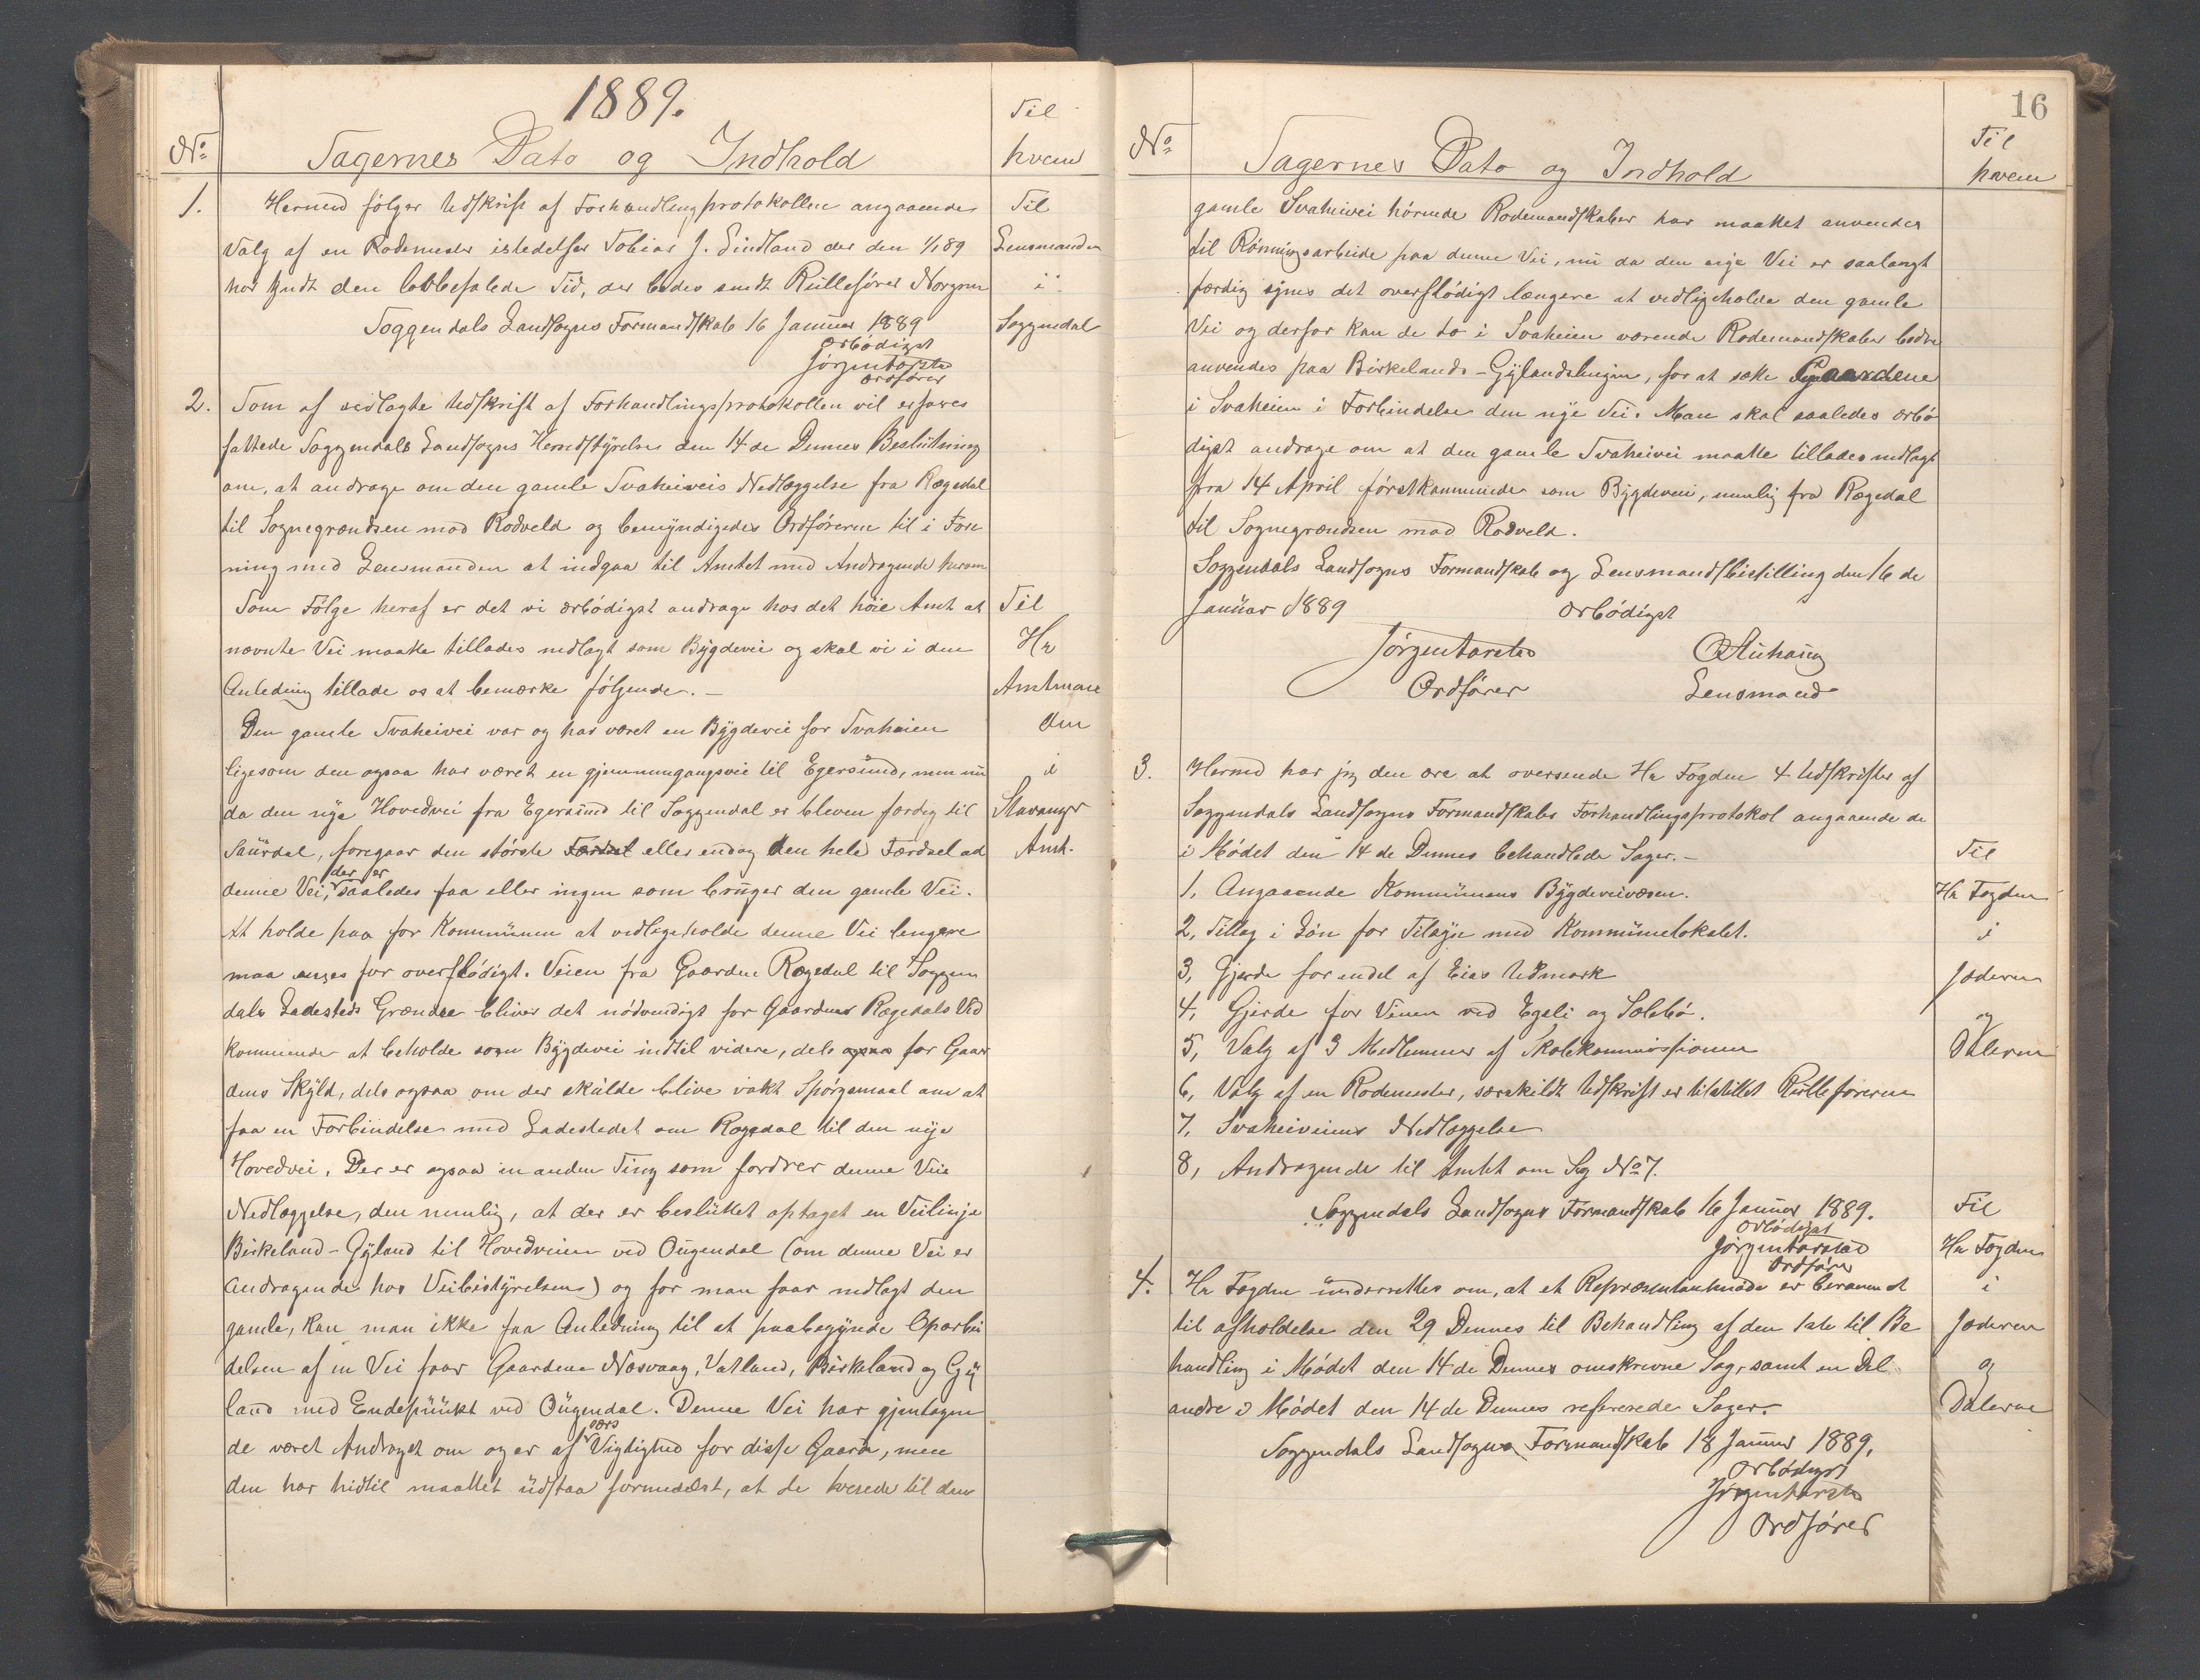 1889.
No Sagernes Dato og Indhold Til hvem
1. Hermed følger Udskrift af Forhandlingsprotokollen angaaende Til
Valg af en Rodemester istedetfor Tobias J. Lindland der den 1/1 89 Lensmanden
har udt den befalede Tid, der bedes sendt Rulleføreren i
Soggendals Landsogns Formandskab 16 Januar 1889 Soggendal
Ærbødigst
Jørgen Tarsta
Ordfører
2. Som af vedlagte Udskrift af Forhandlingsprotokollen vil erfares
fattede Soggendals Landsogns Herredstyrelse den 14de Dennes Beslutning
om, at andrage om den gamle Svaheiveis Nedlæggelse fra Rægedal
til Sognegrændsen mod Rodveld og bemyndigedes Ordføreren til i Fore
ning med Lensmanden at indgaa til Amtet med Andragende herom
Som Følge heraf er det vi ærbødigst andrage hos det høie Amt at Til
nævnte Vei maatte tillades nedlagt som Bygdevei og skal vi i den Hr
Anledning tillade os at bemærke følgende. — Amtman
Den gamle Svaheivei var og har været en Bygdevei for Svaheien den
ligesom den ogsaa har været en gjennemgangsvei til Egersund, men nu i
da den nye Hovedvei fra Egersund til Soggendal er bleven færdig til Stavanger
Saurdal, foregaar den største Færdsel eller endog den hele Færdsel ad Amt.
denne Vei, der er saaledes faa eller ingen som bruger den gamle Vei.
At holde paa for Kommunen at vedligeholde denne Vei længere
maa anses for overflødigt. Veien fra Gaarden Rægedal til Soggen
dals Ladesteds Grændse bliver det nødvendigt for Gaarden Rægedals Ved
kommende at beholde som Bygdevei indtil videre, dels ogsaa for Gaar
dens Skyld, dels ogsaa om der skulde blive vakt Spørgsmaal om at
faa en Forbindelse med Ladestedet om Rægedal til den nye
Hovedvei. Der er ogsaa en anden Ting som fordrer denne Veis
Nedlæggelse, den nemlig, at der er besluttet optaget en Veilinje
Birkeland-Gyland til Hovedveien ved Ougendal (om denne Vei er
Andragende hos Veibestyrelsen) og før man faar nedlagt den
gamle, kan man ikke faa Anledning til at paabegynde Oparbei
delsen af en Vei fra Gaardene Nesvaag, Vatland, Birkeland og Gy
land med Endepunkt ved Ougendal. Denne Vei har gjentagen
de været Andraget om og er af særs Vigtighed for disse Gaarde, men
den har hidtil maattet udstaa formedelst, at de til den
16
No Sagernes Dato og Indhold Til hvem
gamle Svaheivei hørende Rodemandskaber har maattet anvendes
til Rønningsarbeide paa denne Vei, nu da den nye Vei er saalangt
færdig synes det overflødigt længere at vedligeholde den gamle
Vei og derfor kan de to i Svaheien værende Rodemandskaber bedre
anvendes paa Birkelands-Gylandslinjen, for at sætte Gaardene
i Svaheien i Forbindelse den nye Vei. Man skal saaledes ærbø
digst andrage om at den gamle Svaheivei maatte tillades nedlagt
fra 14 April førstkommende som Bygdevei, nemlig fra Rægedal
til Sognegrændsen mod Rodveld.
Soggendals Landsogns Formandskab og Lensmandsbestilling den 16 de
Januar 1889 Ærbødigst
Jørgen Tarsta
Ordfører Lensmand
3. Hermed har jeg den ære at oversende Hr Fogden 4 Udskrifter af
Soggendals Landsogns Formandskabs Forhandlingsprotokol angaaende de
i Mødet den 14 de Dennes behandlede Sager. — Til
1, Angaaende Kommunens Bygdeveivæsen. Hr Fogden
2, Tillæg i Løn for Tilsyn med Kommunelokalet. i
3, Gjerde for endel af Eias Udmark Jæderen
4, Gjerde for Veien ved Egeli og Solebø. og
5, Valg af 3 Medlemmer af Skolekommissionen Dalerne
6, Valg af en Rodemester, særskildt Udskrift er tilstillet Rulleføreren
7, Svaheiveiens Nedlæggelse
8, Andragende til Amtet om Sag No 7.
Soggendals Landsogns Formandskab 16 Januar 1889. Til
Ærbødigst
Jørgen Tarsta Hr Fogden
Ordfører
4. Hr Fogden underrettes om, at et Repræsentantmøde er berammet i
til afholdelse den 29 Dennes til Behandling af den 1ste til Be Jæderen
handling i Mødet den 14 de Dennes omskrevne Sag, samt en Del og
andre i Mødet den 14 de Dennes refererede Sager. Dalerne
Soggendals Landsogns Formandskab 18 Januar 1889.
Ærbødigst
Jørgen Tarsta
Ordfører